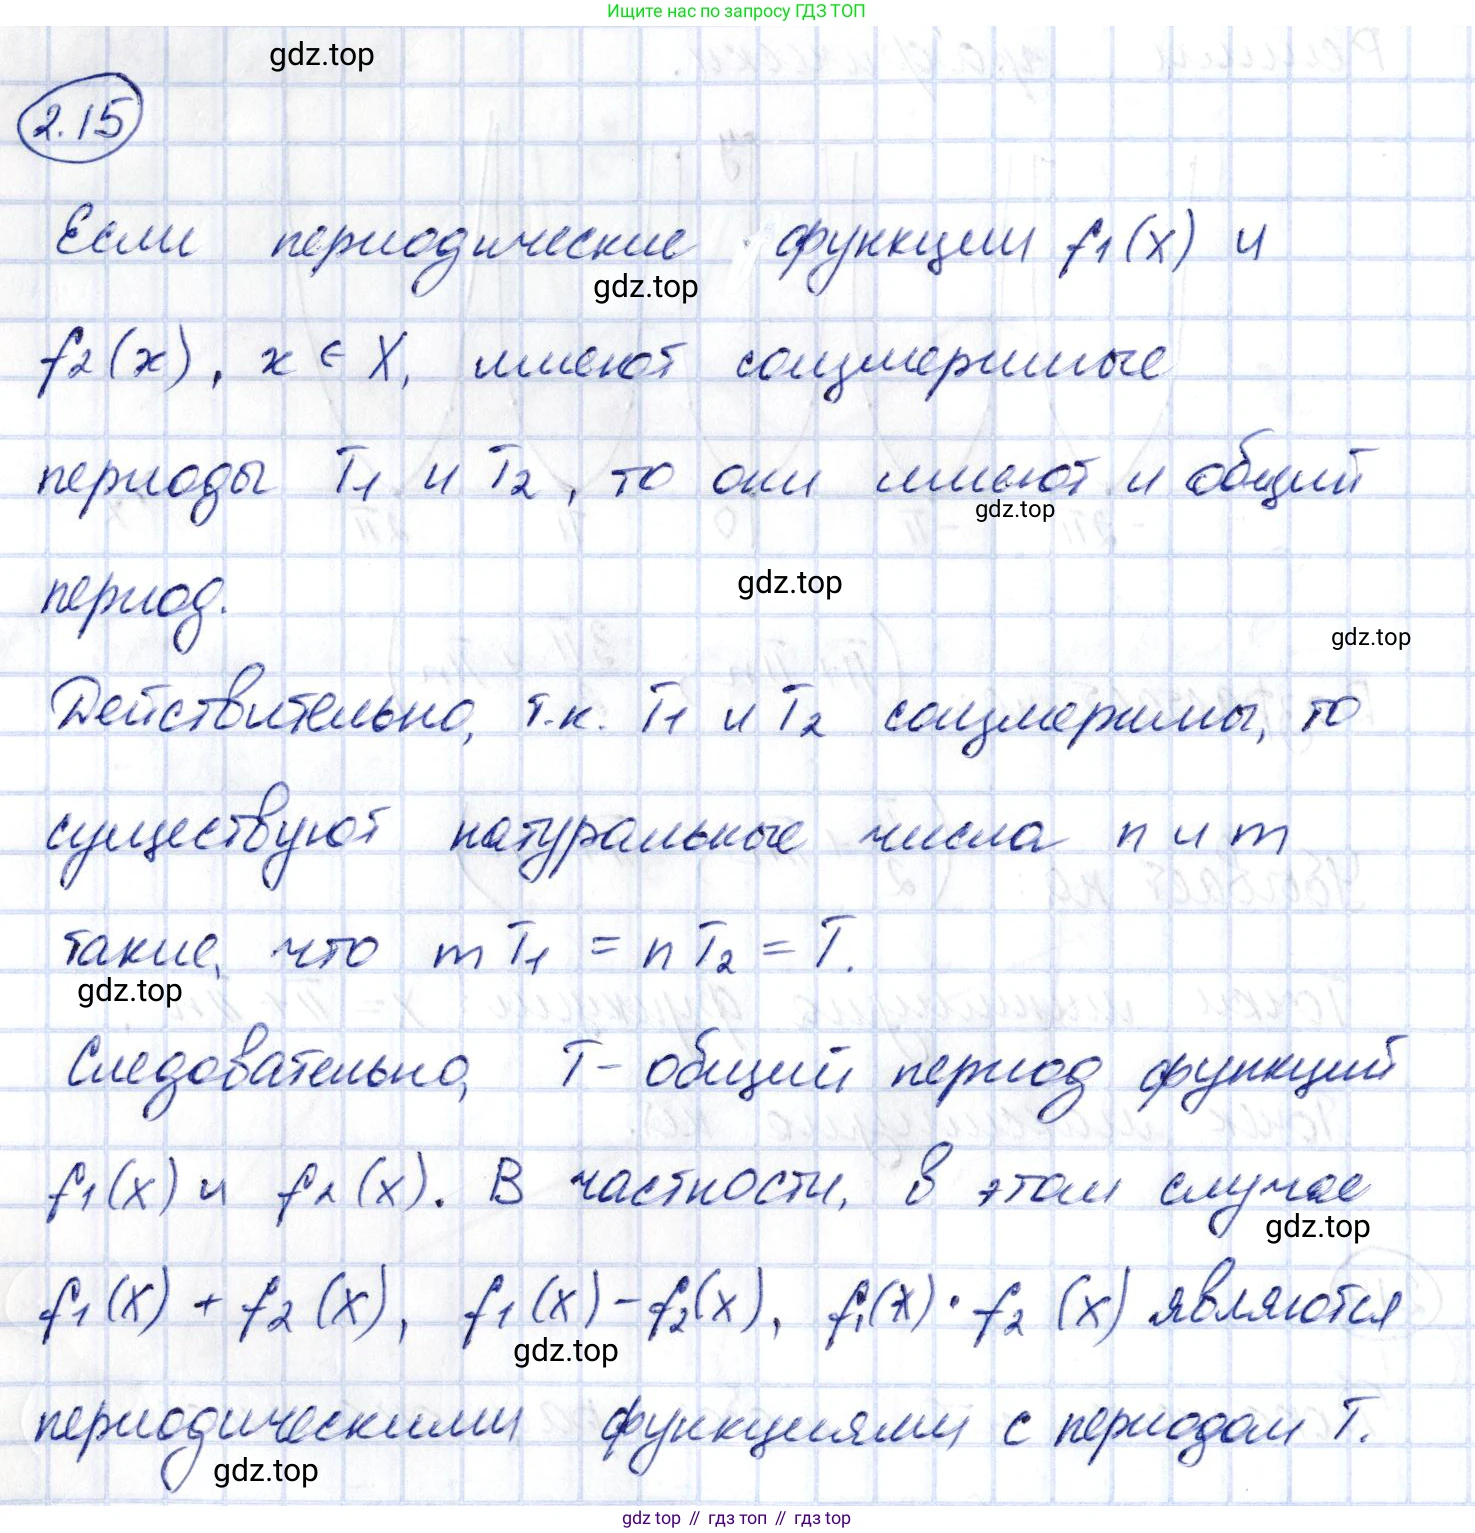 Ищите нас по запросу ГДЗ ТОП
gdz.top
2.15
Если периодические функции f₁(x) и
gdz.top
f₂(x), x ∈ X, имеют соизмеримые
периоды T₁ и T₂, то они имеют и общий
gdz.top
период.
gdz.top
gdz.top
Действительно, т.к. T₁ и T₂ соизмеримы, то
существуют натуральные числа n и m
такие, что mT₁ = nT₂ = T.
gdz.top
Следовательно, T - общий период функций
f₁(x) и f₂(x). В частности, в этом случае
gdz.top
f₁(x) + f₂(x), f₁(x) - f₂(x), f₁(x) · f₂(x) являются
gdz.top
периодическими функциями с периодом T.
gdz.top
gdz.top // гдз топ // гдз top